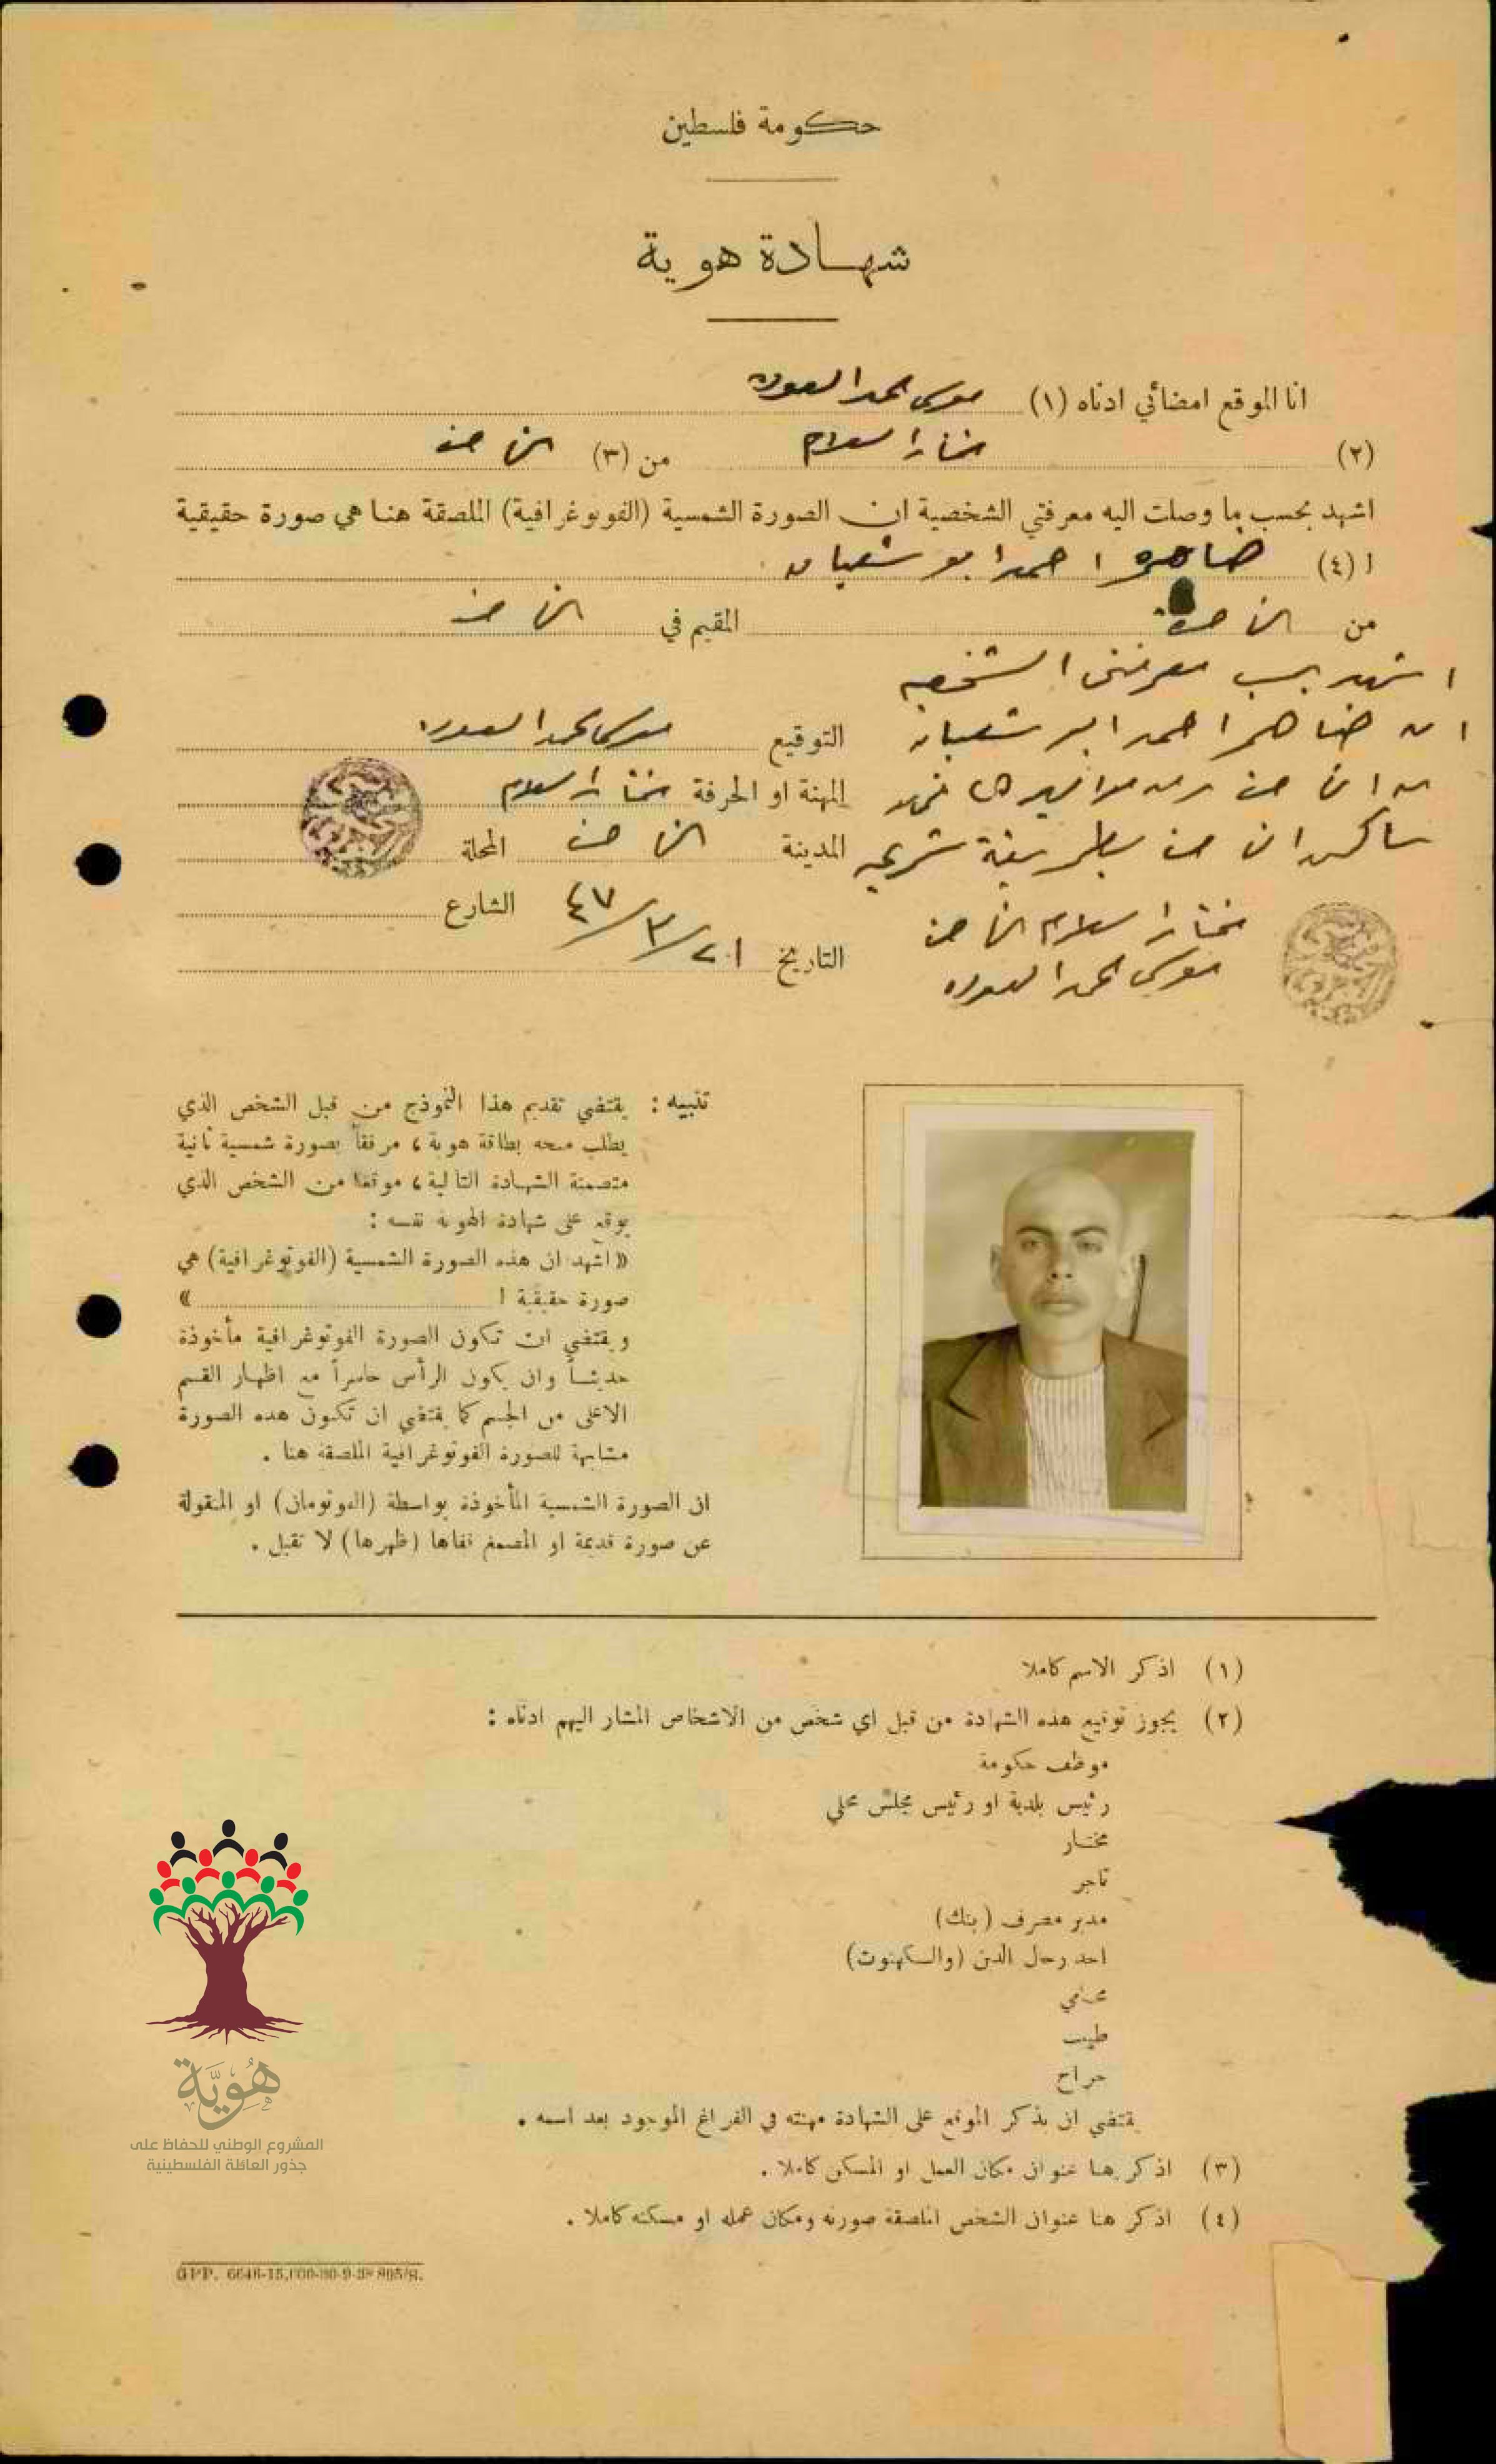 حكومة فلسطين
شهادة هوية
انا الموقع امضائي ادناه (١) موسى المحمد العوده
(٢) مختار اسلام من (٣) الناصرة
اشهد بحسب ما وصلت اليه معرفتي الشخصية ان الصورة الشمسية (الفوتوغرافية) الملصقة هنا هي صورة حقيقية
ا (٤) ضاهر احمد ابو شعبان
من الناصرة المقيم في الناصرة
اشهد بحسب معرفتي الشخصيه
ان ضاهر احمد ابو شعبان
من الناصرة ومن مواليدها
ساكن الناصرة بطريقة شرعيه
مختار اسلام الناصرة
موسى المحمد العوده
التوقيع موسى المحمد العوده
المهنة او الحرفة مختار اسلام
المدينة الناصرة المحلة
الشارع
التاريخ ٢١/٣/٤٧
تنبيه : يقتضي تقديم هذا النموذج من قبل الشخص الذي
يطلب منحه بطاقة هوية ، مرفقاً بصورة شمسية ثانية
متضمنة الشهادة التالية ، موقعا من الشخص الذي
يوقع على شهادة الهوية نفسه :
« اشهد ان هذه الصورة الشمسية (الفوتوغرافية) هي
صورة حقيقية ا »
ويقتضي ان تكون الصورة الفوتوغرافية مأخوذة
حديثاً وان يكون الرأس حاسراً مع اظهار القسم
الاعلى من الجسم كما يقتضي ان تكون هذه الصورة
مشابهة للصورة الفوتوغرافية الملصقة هنا .
ان الصورة الشمسية المأخوذة بواسطة (الفوتومان) او المنقولة
عن صورة قديمة او المصمغ قفاها (ظهرها) لا تقبل .
(١) اذكر الاسم كاملا
(٢) يجوز توقيع هذه الشهادة من قبل اي شخص من الاشخاص المشار اليهم ادناه :
موظف حكومة
رئيس بلدية او رئيس مجلس محلي
مختار
تاجر
مدير مصرف (بنك)
احد رجال الدين (والكهنوت)
محامي
طبيب
جراح
يقتضي ان يذكر الموقع على الشهادة مهنته في الفراغ الموجود بعد اسمه .
(٣) اذكر هنا عنوان مكان العمل او المسكن كاملا .
(٤) اذكر هنا عنوان الشخص الملصقة صورته ومكان عمله او مسكنه كاملا .
هُوِيَّة
المشروع الوطني للحفاظ على
جذور العائلة الفلسطينية
GPP. 6646-15,000-30-9-38 805/S.